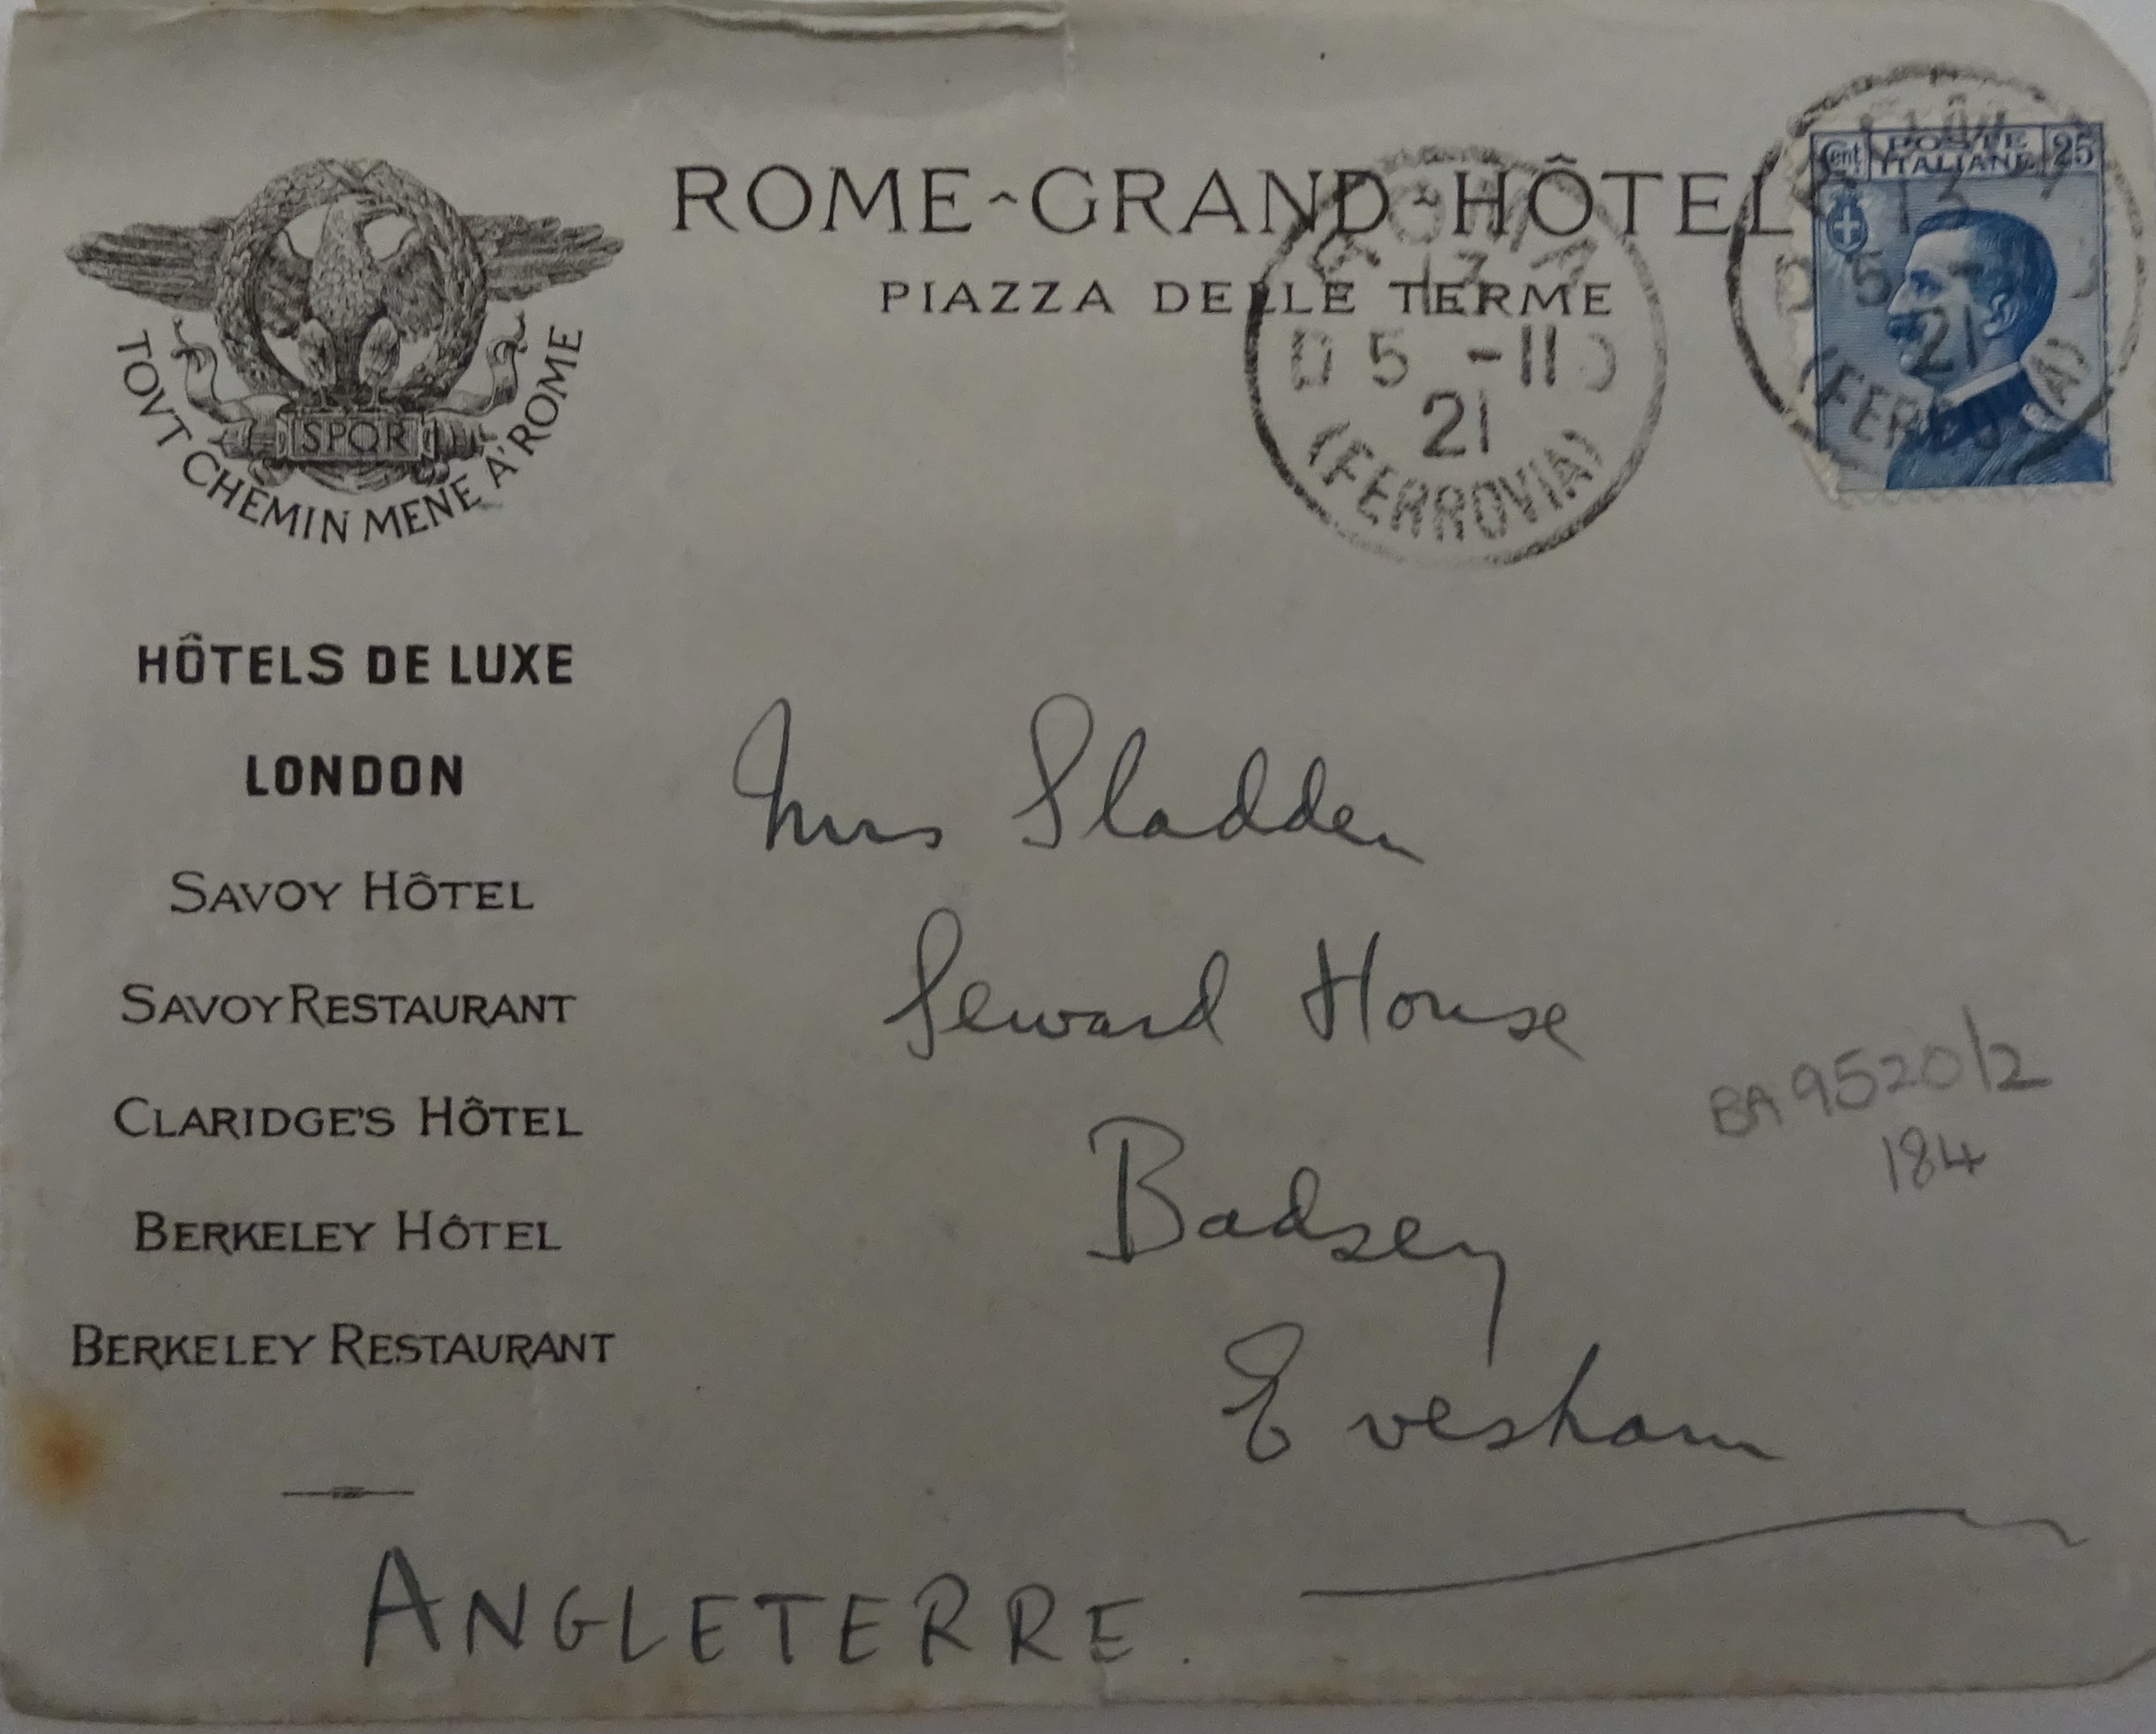 ROME-GRAND-HÔTEL
PIAZZA DELLE TERME
Cent POSTE ITALIANE 25
SPQR
TOVT CHEMIN MENE A'ROME
ROMA
13
5 -11
21
(FERROVIA)
13
5
21
HÔTELS DE LUXE
LONDON
SAVOY HÔTEL
SAVOY RESTAURANT
CLARIDGE'S HÔTEL
BERKELEY HÔTEL
BERKELEY RESTAURANT
Mrs Sladden
Seward House
Badsey
Evesham
BA 9520/2
184
ANGLETERRE.